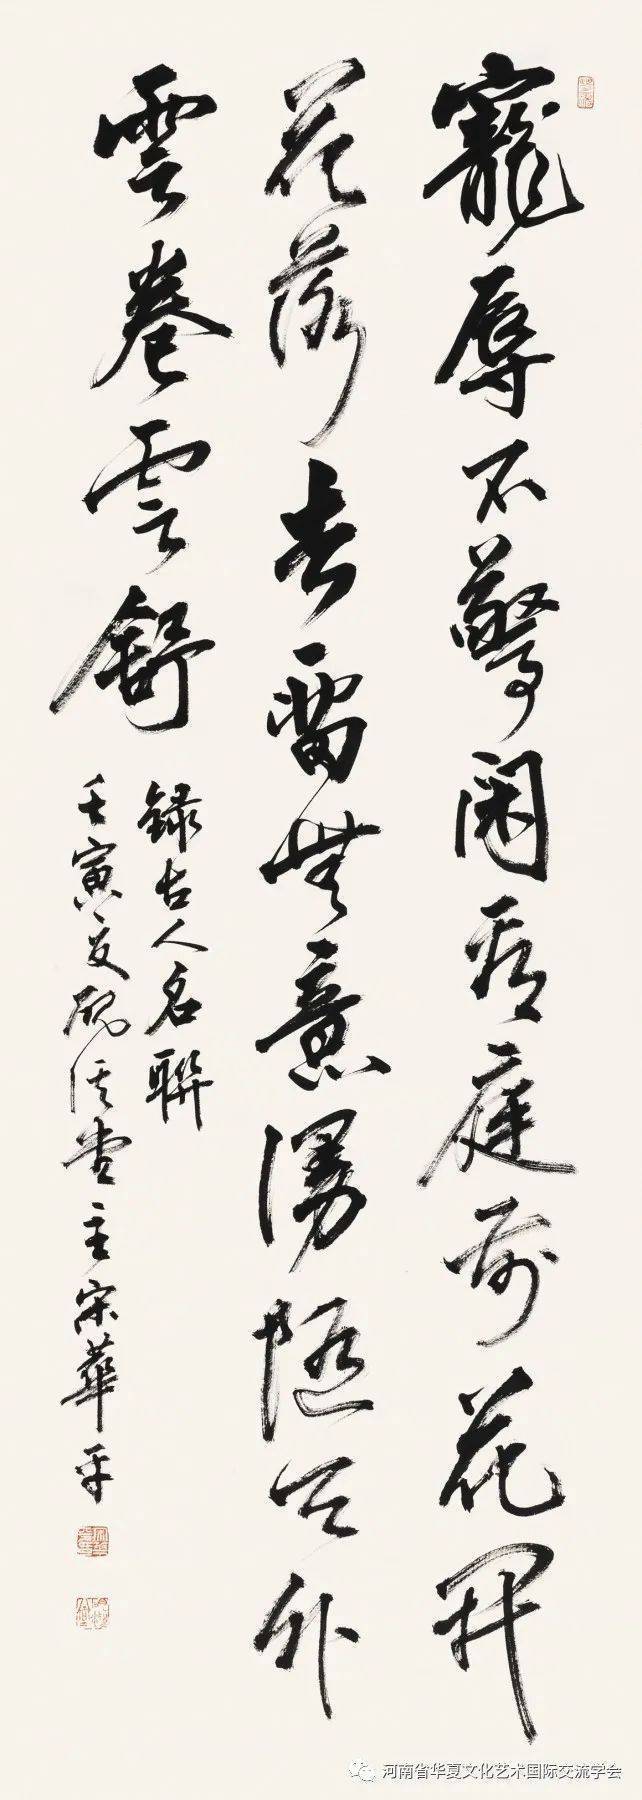 寵辱不驚閑看庭前花開
花落去留無意漫隨天外
雲卷雲舒
錄古人名聯
壬寅夏硯堂主宋華平
河南省华夏文化艺术国际交流学会